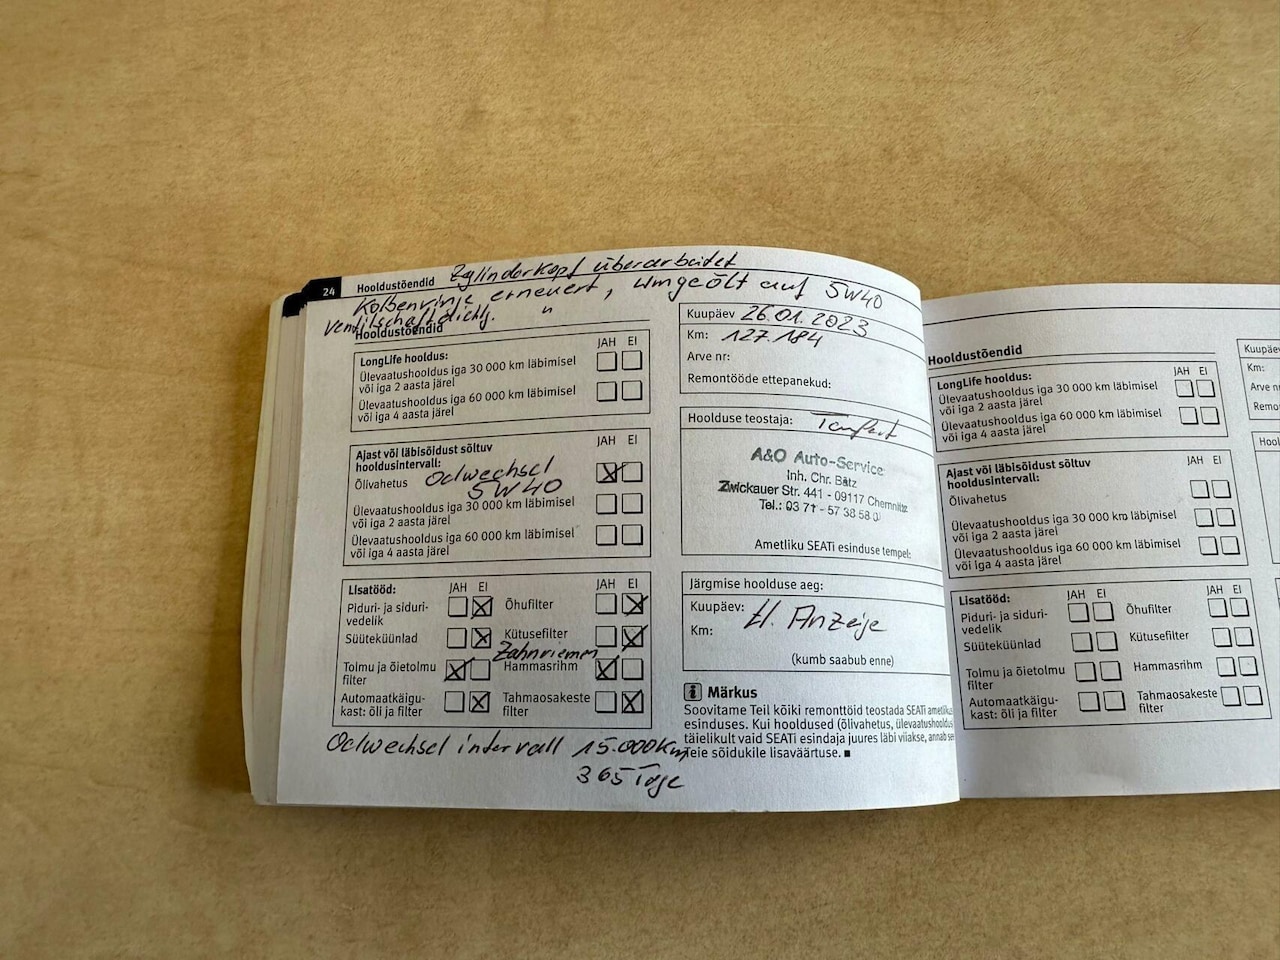 24 Hooldustõendid Zylinderkopf überarbeitet
Kolbenringe erneuert, umgeölt auf 5W40
Ventilschaftdichtg. "
Hooldustõendid
LongLife hooldus: JAH EI
Ülevaatushooldus iga 30 000 km läbimisel
või iga 2 aasta järel
Ülevaatushooldus iga 60 000 km läbimisel
või iga 4 aasta järel
Ajast või läbisõidust sõltuv JAH EI
hooldusintervall:
Õlivahetus Oelwechsel
5W40
Ülevaatushooldus iga 30 000 km läbimisel
või iga 2 aasta järel
Ülevaatushooldus iga 60 000 km läbimisel
või iga 4 aasta järel
Lisatööd: JAH EI JAH EI
Piduri- ja siduri-
vedelik
Õhufilter
Süüteküünlad
Kütusefilter
Zahnriemen
Tolmu ja õietolmu
filter
Hammasrihm
Automaatkäigu-
kast: õli ja filter
Tahmaosakeste
filter
Oelwechsel intervall 15.000Km
365 Tage
Kuupäev 26.01.2023
Km: 127.184
Arve nr:
Remontööde ettepanekud:
Hoolduse teostaja:
A&O Auto-Service
Inh. Chr. Bätz
Zwickauer Str. 441 - 09117 Chemnitz
Tel.: 03 71 - 57 38 58 0
Ametliku SEATi esinduse tempel:
Järgmise hoolduse aeg:
Kuupäev: lt. Anzeige
Km:
(kumb saabub enne)
i Märkus
Soovitame Teil kõiki remonttöid teostada SEATi ametlikus
esinduses. Kui hooldused (õlivahetus, ülevaatushooldus
täielikult vaid SEATi esindaja juures läbi viiakse, annab see
Teie sõidukile lisaväärtuse. ■
Hooldustõendid
LongLife hooldus: JAH EI
Ülevaatushooldus iga 30 000 km läbimisel
või iga 2 aasta järel
Ülevaatushooldus iga 60 000 km läbimisel
või iga 4 aasta järel
Ajast või läbisõidust sõltuv JAH EI
hooldusintervall:
Õlivahetus
Ülevaatushooldus iga 30 000 km läbimisel
või iga 2 aasta järel
Ülevaatushooldus iga 60 000 km läbimisel
või iga 4 aasta järel
Lisatööd: JAH EI JAH EI
Piduri- ja siduri-
vedelik
Õhufilter
Süüteküünlad
Kütusefilter
Tolmu ja õietolmu
filter
Hammasrihm
Automaatkäigu-
kast: õli ja filter
Tahmaosakeste
filter
Kuupäev
Km:
Arve nr
Remo
Hool